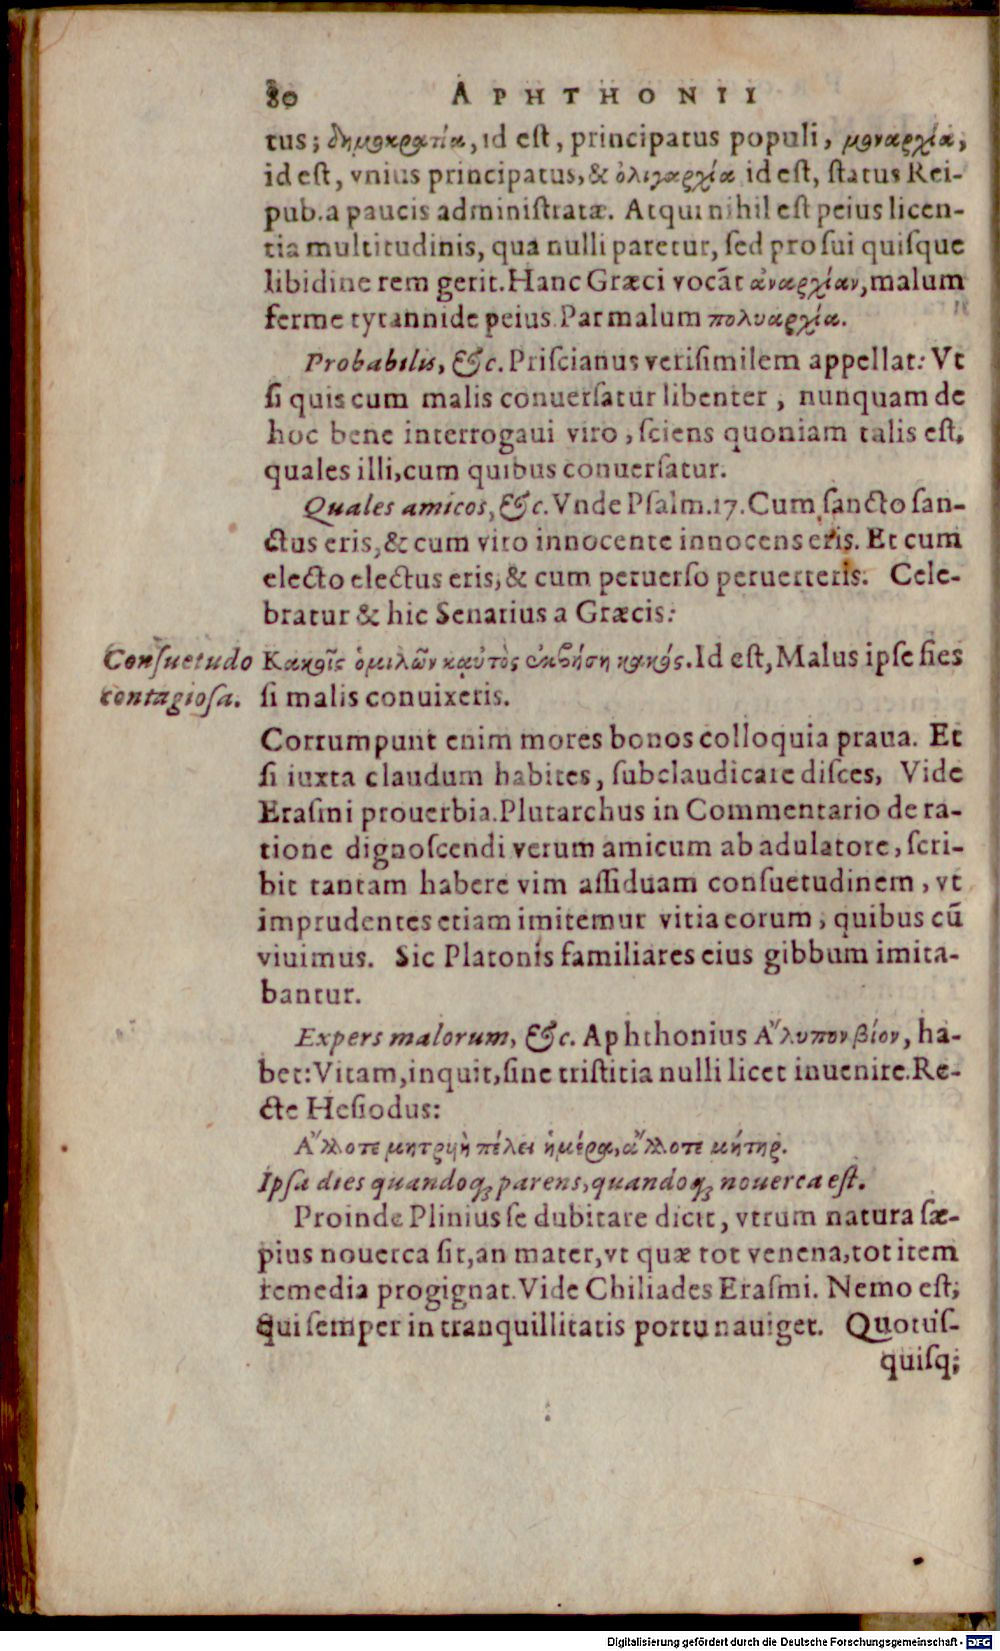 80 APHTHONII
tus; δημοκρατία, id eſt, principatus populi, μοναρχία,
id eſt, vnius principatus, & ὀλιγαρχία id eſt, ſtatus Rei-
pub. a paucis adminiſtratæ. Atqui nihil eſt peius licen-
tia multitudinis, qua nulli paretur, ſed pro ſui quiſque
libidine rem gerit. Hanc Græci vocāt ἀναρχίαν, malum
ferme tyrannide peius. Par malum πολυαρχία.
Probabilis, &c. Priſcianus veriſimilem appellat: Vt
ſi quis cum malis conuerſatur libenter, nunquam de
hoc bene interrogaui viro, ſciens quoniam talis eſt,
quales illi, cum quibus conuerſatur.
Quales amicos, &c. Vnde Pſalm. 17. Cum ſancto ſan-
ctus eris, & cum viro innocente innocens eris. Et cum
electo electus eris, & cum peruerſo peruerteris. Cele-
bratur & hic Senarius a Græcis:
Conſuetudo
contagioſa.
Κακοῖς ὁμιλῶν καὐτὸς ἐκβήση κακός. Id eſt, Malus ipſe fies
ſi malis conuixeris.
Corrumpunt enim mores bonos colloquia praua. Et
ſi iuxta claudum habites, ſubclaudicare diſces, Vide
Eraſmi prouerbia. Plutarchus in Commentario de ra-
tione dignoſcendi verum amicum ab adulatore, ſcri-
bit tantam habere vim aſſiduam conſuetudinem, vt
imprudentes etiam imitemur vitia eorum, quibus cū
viuimus. Sic Platonis familiares eius gibbum imita-
bantur.
Expers malorum, &c. Aphthonius Ἄλυπον βίον, ha-
bet: Vitam, inquit, ſine triſtitia nulli licet inuenire. Re-
cte Heſiodus:
Ἄλλοτε μητρυιὴ πέλει ἡμέρα, ἄλλοτε μήτηρ.
Ipſa dies quandoq; parens, quandoq; nouerca eſt.
Proinde Plinius ſe dubitare dicit, vtrum natura ſæ-
pius nouerca ſit, an mater, vt quæ tot venena, tot item
remedia progignat. Vide Chiliades Eraſmi. Nemo eſt,
qui ſemper in tranquillitatis portu nauiget. Quotuſ-
quiſq;
Digitalisierung gefördert durch die Deutsche Forschungsgemeinschaft - DFG